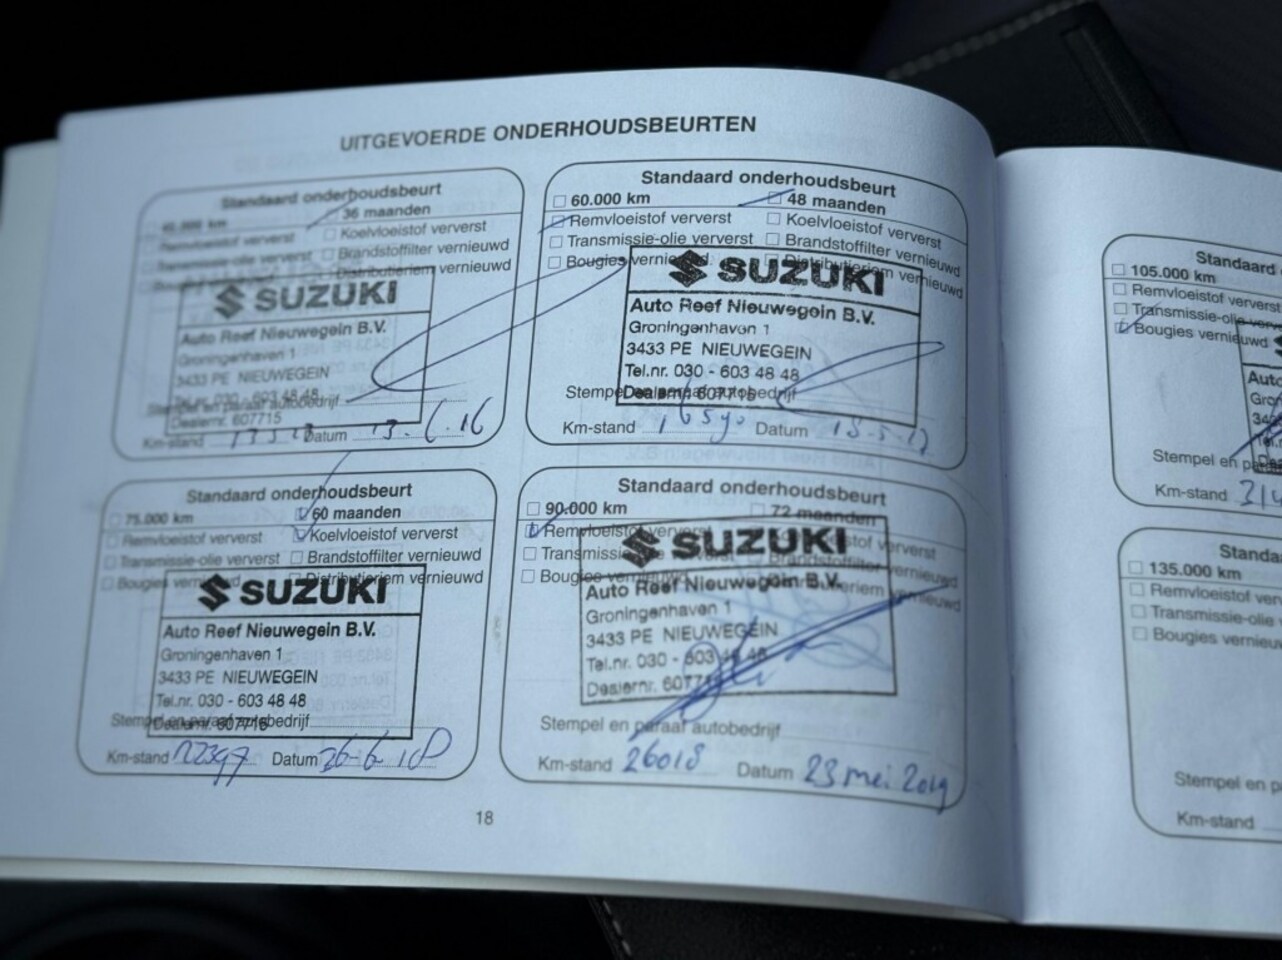 UITGEVOERDE ONDERHOUDSBEURTEN
Standaard onderhoudsbeurt
45.000 km 36 maanden
Remvloeistof ververst Koelvloeistof ververst
Brandstoffilter vernieuwd
vernieuwd
SUZUKI
Auto Reef Nieuwegein B.V.
Groningenhaven 1
3433 PE NIEUWEGEIN
Tel.nr. 030 - 603 48 48
Stempel en paraaf autobedrijf
Dealernr. 607715
Km-stand Datum 13.6.16
Standaard onderhoudsbeurt
60.000 km 48 maanden
Remvloeistof ververst Koelvloeistof ververst
Transmissie-olie ververst Brandstoffilter vernieuwd
Bougies vernieuwd Distributieriem vernieuwd
SUZUKI
Auto Reef Nieuwegein B.V.
Groningenhaven 1
3433 PE NIEUWEGEIN
Tel.nr. 030 - 603 48 48
Stempel en paraaf autobedrijf
Dealernr. 607715
Km-stand Datum 18-5-17
Standaard onderhoudsbeurt
75.000 km 60 maanden
Remvloeistof ververst Koelvloeistof ververst
Transmissie-olie ververst Brandstoffilter vernieuwd
Bougies vernieuwd Distributieriem vernieuwd
SUZUKI
Auto Reef Nieuwegein B.V.
Groningenhaven 1
3433 PE NIEUWEGEIN
Tel.nr. 030 - 603 48 48
Stempel en paraaf autobedrijf
Dealernr. 607715
Km-stand 22397 Datum 26-6-18
Standaard onderhoudsbeurt
90.000 km 72 maanden
Remvloeistof ververst Koelvloeistof ververst
Transmissie-olie ververst Brandstoffilter vernieuwd
Bougies vernieuwd Distributieriem vernieuwd
SUZUKI
Auto Reef Nieuwegein B.V.
Groningenhaven 1
3433 PE NIEUWEGEIN
Tel.nr. 030 - 603 48 48
Dealernr. 607715
Stempel en paraaf autobedrijf
Km-stand 26018 Datum 23 mei 2019
18
Standaard
105.000 km
Remvloeistof ververst
Transmissie-olie ververst
Bougies vernieuwd
Auto
Gron
3433
Tel.
Dea
Stempel en paraaf
Km-stand
Standa
135.000 km
Remvloeistof ververst
Transmissie-olie
Bougies vernieuw
Stempel en p
Km-stand